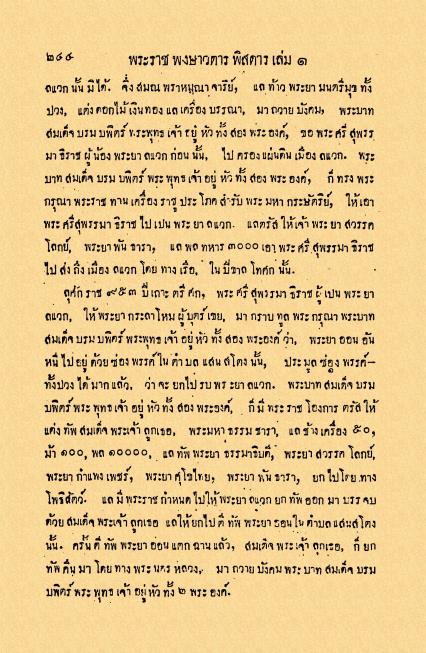 ๒๔๔ พระราช พงษาวดาร พิศดาร เล่ม ๑
ลแวก นั้น มิได้. จึ่ง สมณ พราหมณา จาริย์, แล ท้าว พระยา มนตรีมุข ทั้ง
ปวง, แต่ง ดอกไม้ เงินทอง แล เครื่อง บรรณา, มา ถวาย บังคม, พระบาท
สมเด็จ บรม บพิตร์ พระพุทธ เจ้า อยู่ หัว ทั้ง สอง พระ องค์, ขอ พระ ศรี สุพรร
มา ธิราช ผู้ น้อง พระยา ลแวก ก่อน นั้น, ไป ครอง แผ่นดิน เมือง ลแวก. พระ
บาท สมเด็จ บรม บพิตร์ พระ พุทธ เจ้า อยู่ หัว ทั้ง สอง พระ องค์, ก็ ทรง พระ
กรุณา พระราช ทาน เครื่อง ราชู ประ โภค สำรับ พระ มหา กระษัตริย์, ให้ เอา
พระ ศรีสุพรรมา ธิราช ไป เปน พระ ยา ลแวก. แลตรัส ให้ เจ้า พระ ยา สวรรค
โลกย์, พระยา พัน ธารา, แล พล ทหาร ๓๐๐๐ เอา พระ ศรี สุพรรมา ธิราช
ไป ส่ง ถึ่ง เมือง ลแวก โดย ทาง เรือ, ใน ปี ขาล โทศก นั้น.
ลุศัก ราช ๙๕๓ ปี เถาะ ตรี ศก, พระ ศรี สุพรรมา ธิราช ผู้ เปน พระ ยา
ลแวก, ให้ พระยา กระลาโหม ผู้ บุตร์ เขย, มา กราบ ทูล พระ กรุณา พระบาท
สมเด็จ บรม บพิตร์ พระพุทธ เจ้า อยู่ หัว ทั้ง สอง พระองค์ ว่า, พระยา ออน อัน
หนี ไป อยู่ ด้วย ซ่อง พรรค์ ใน ตำ บล แสน สโตง นั้น, ประ มูล ซ่อง พรรค์—
ทั้งปวง ได้ มาก แล้ว, ว่า จะ ยก ไป รบ พระ ยา ลแวก. พระบาท สมเด็จ บรม
บพิตร์ พระ พุทธ เจ้า อยู่ หัว ทั้ง สอง พระองค์, ก็ มี พระ ราช โองการ ตรัส ให้
แต่ง ทัพ สมเด็จ พระเจ้า ลูกเธอ, พระมหา ธรรม ราชา, แล ช้าง เครื่อง ๕๐,
ม้า ๑๐๐, พล ๑๐๐๐๐, แล ทัพ พระยา ธรรมาธิบดี, พระยา สวรรค โลกย์,
พระยา กำแพง เพชร์, พระยา ศุโขไทย, พระยา พัน ธารา, ยก ไป โดย ทาง
โพธิสัตว์. แล มี พระราช กำหนด ไป ให้ พระยา ลแวก ยก ทัพ ออก มา บรร จบ
ด้วย สมเด็จ พระเจ้า ลูกเธอ แลให้ ยกไป ตี ทัพ พระยา ออน ใน ตำบล แสนสโตง
นั้น. ครั้น ตี ทัพ พระยา อ่อน แตก ฉาน แล้ว, สมเด็จ พระ เจ้า ลูกเธอ, ก็ ยก
ทัพ คืน มา โดย ทาง พระ นคร หลวง, มา ถวาย บังคม พระ บาท สมเด็จ บรม
บพิตร์ พระ พุทธ เจ้า อยู่ หัว ทั้ง ๒ พระ องค์.